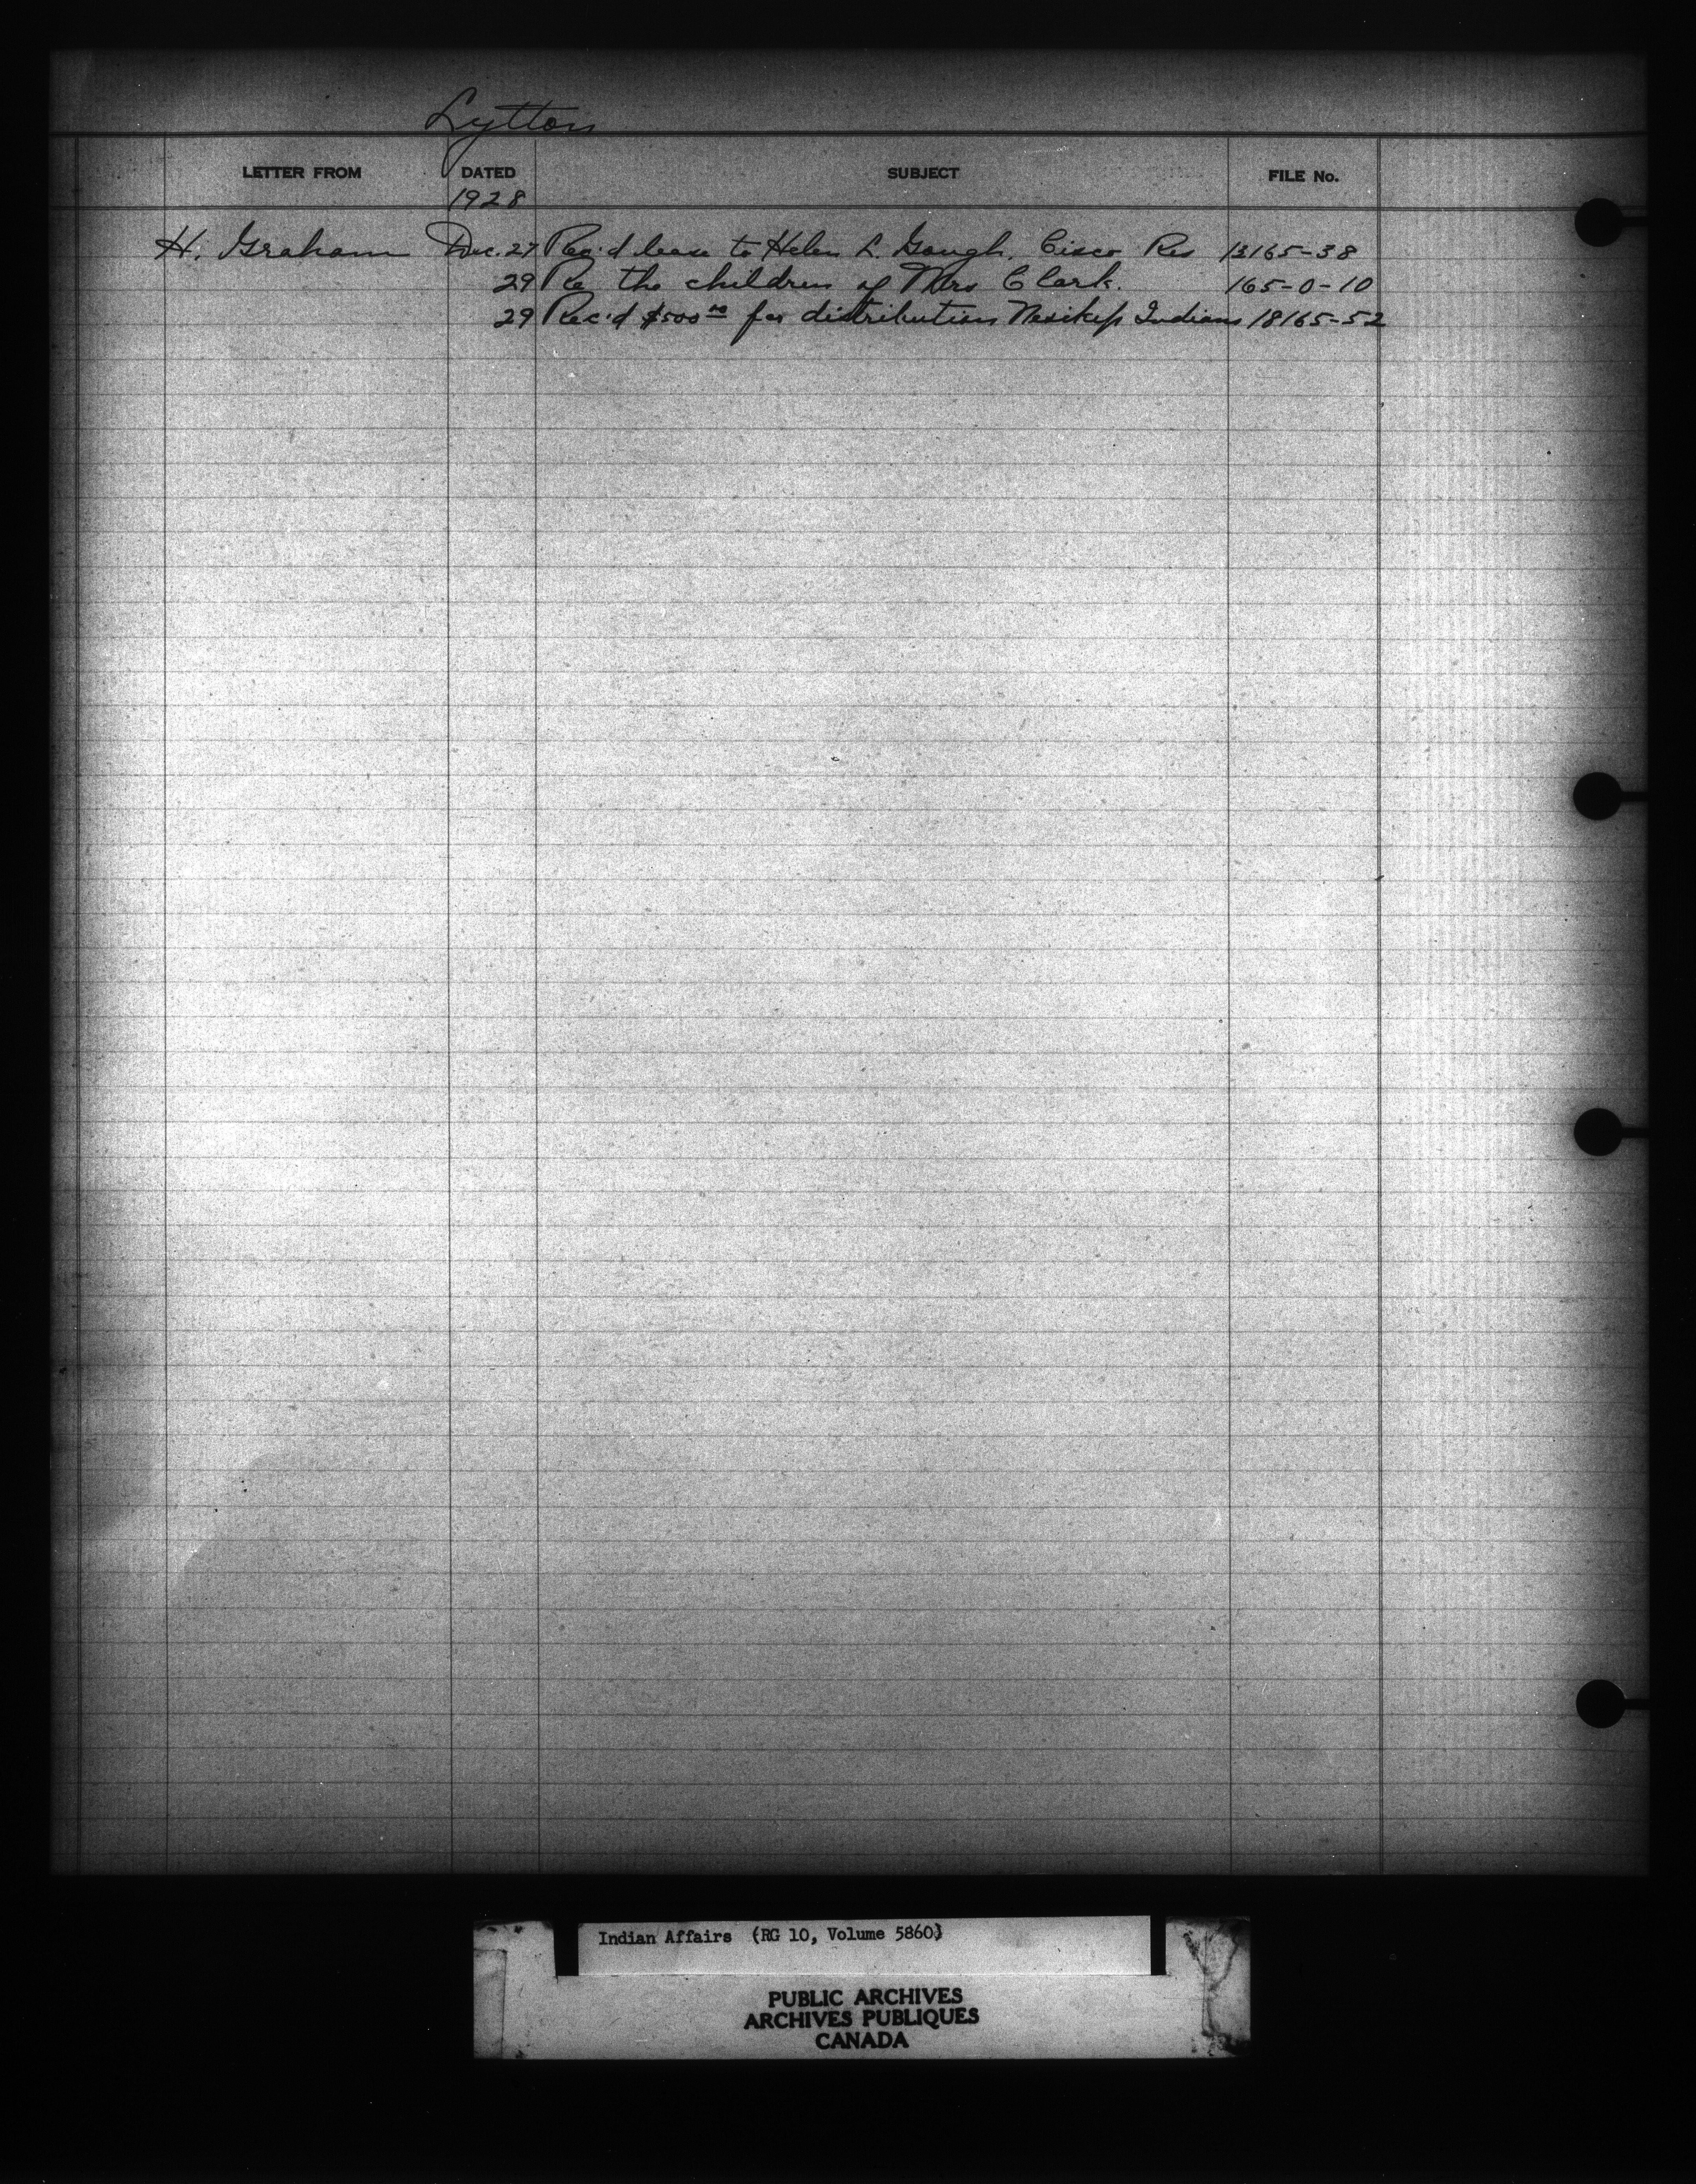 Lytton
LETTER FROM DATED SUBJECT FILE No.
1928
H. Graham Dec. 27 Rec'd lease to Helen L. Gough, Cisco Res 13165-38
29 Re the children of Mrs Clark. 165-0-10
29 Rec'd $500 00 for distribution Nesikep Indians 18165-52
Indian Affairs (RG 10, Volume 5860)
PUBLIC ARCHIVES
ARCHIVES PUBLIQUES
CANADA